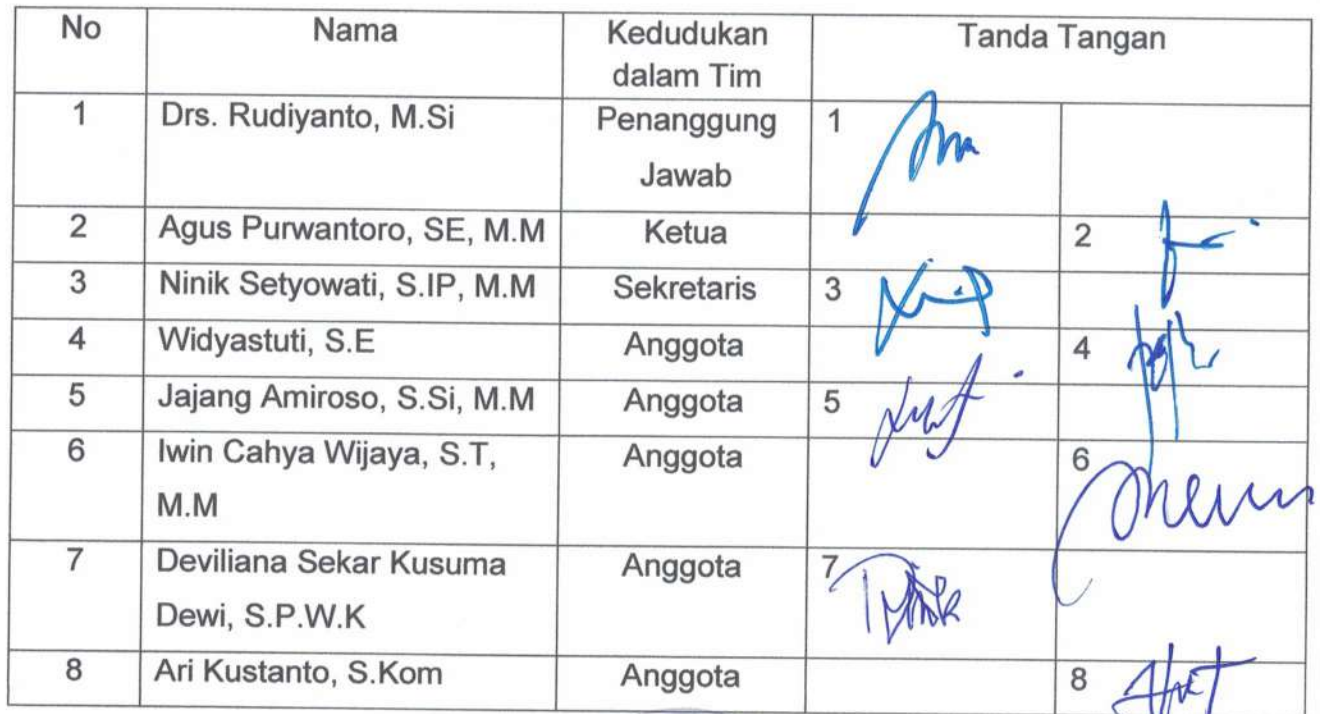 No Nama Kedudukan dalam Tim Tanda Tangan
1 Drs. Rudiyanto, M.Si Penanggung Jawab 1
2 Agus Purwantoro, SE, M.M Ketua 2
3 Ninik Setyowati, S.IP, M.M Sekretaris 3
4 Widyastuti, S.E Anggota 4
5 Jajang Amiroso, S.Si, M.M Anggota 5
6 Iwin Cahya Wijaya, S.T, M.M Anggota 6
7 Deviliana Sekar Kusuma Dewi, S.P.W.K Anggota 7
8 Ari Kustanto, S.Kom Anggota 8